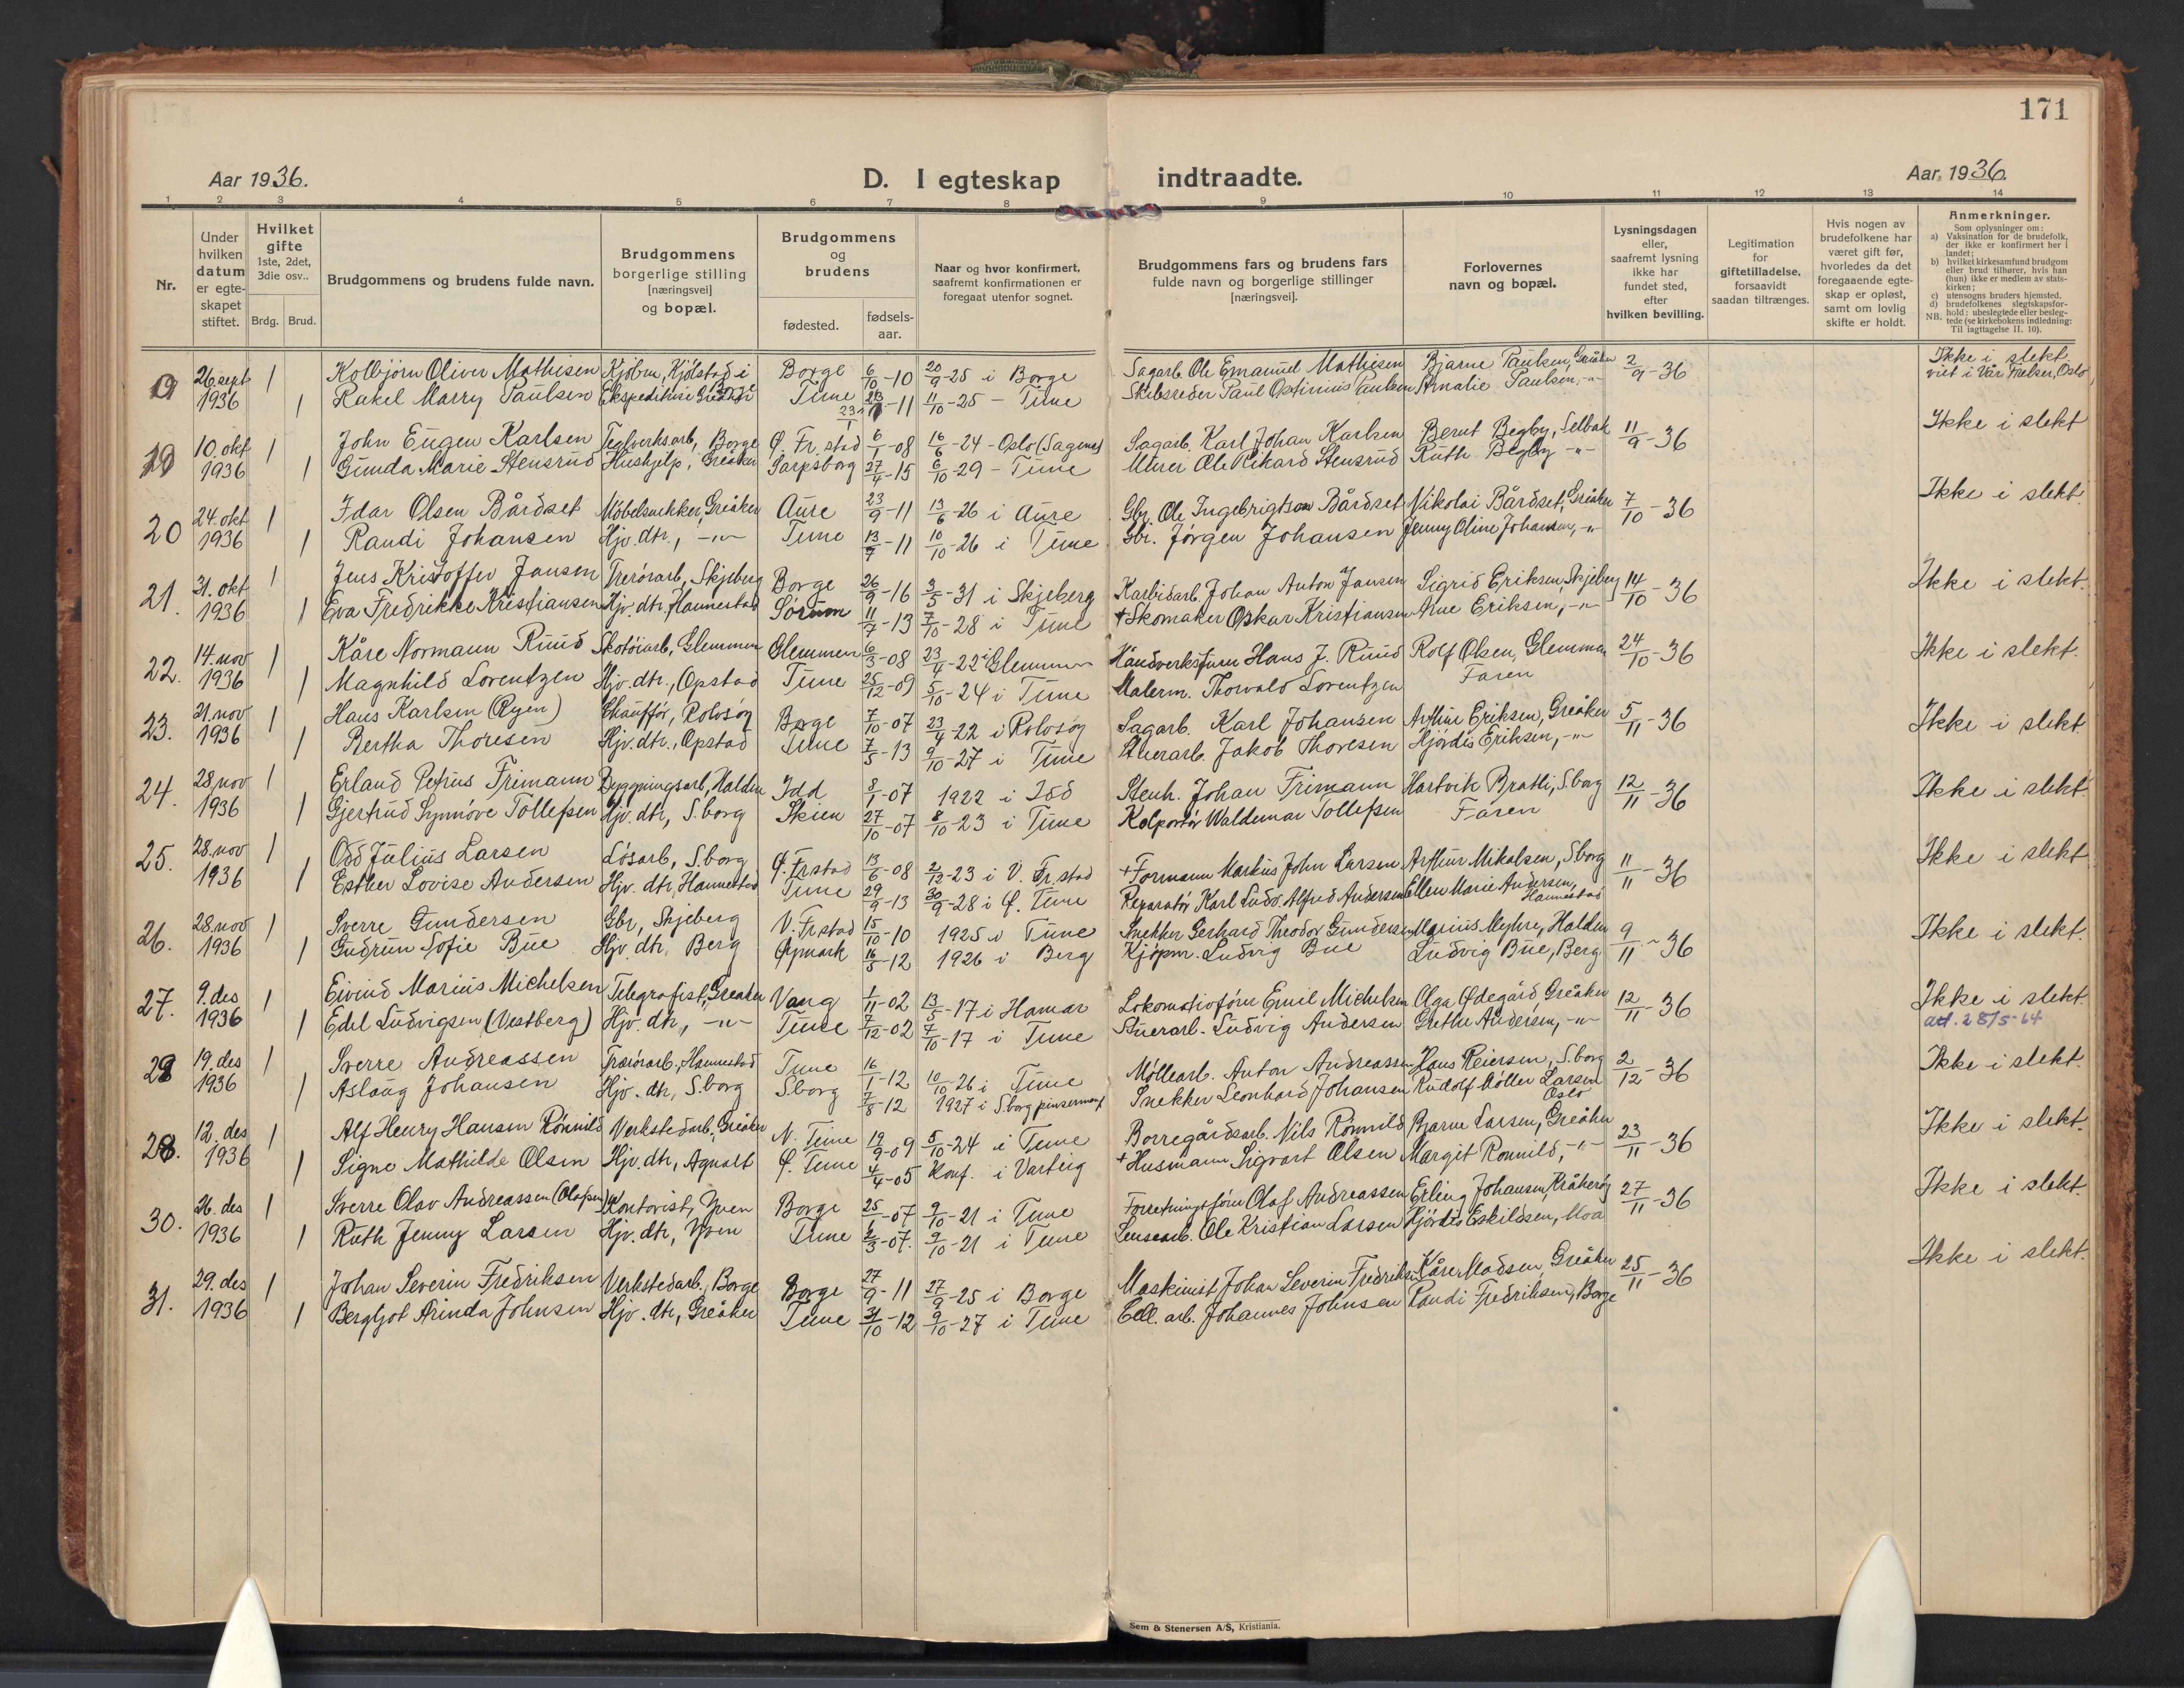 171
Aar 1936.
D. I egteskap indtraadte.
Aar 1936.
1 2 3 4 5 6 7 8 9 10 11 12 13 14
Nr.
Under hvilken datum er egteskapet stiftet.
Hvilket gifte 1ste, 2det, 3die osv..
Brdg. Brud.
Brudgommens og brudens fulde navn.
Brudgommens borgerlige stilling [næringsvei] og bopæl.
Brudgommens og brudens
fødested.
fødsels-aar.
Naar og hvor konfirmert, saafremt konfirmationen er foregaat utenfor sognet.
Brudgommens fars og brudens fars fulde navn og borgerlige stillinger [næringsvei].
Forlovernes navn og bopæl.
Lysningsdagen eller, saafremt lysning ikke har fundet sted, efter hvilken bevilling.
Legitimation for giftetilladelse, forsaavidt saadan tiltrænges.
Hvis nogen av brudefolkene har været gift før, hvorledes da det foregaaende egteskap er opløst, samt om lovlig skifte er holdt.
Anmerkninger.
Som oplysninger om:
a) Vaksination for de brudefolk, der ikke er konfirmert her i landet;
b) hvilket kirkesamfund brudgom eller brud tilhører, hvis han (hun) ikke er medlem av statskirken;
c) utensogns bruders hjemsted.
d) brudefolkenes slegtskapsforhold: ubeslegtede eller beslegtede (se kirkebokens indledning: Til iagttagelse II. 10).
NB.
26 sept 1 Kolbjørn Oliver Mathisen Kjøbm, Kjølstad i Borge Borge 6/10-10 20/9-25 i Borge Sagarb. Ole Emanuel Mathisen Bjarne Paulsen, Greåker 2/9-36 Ikke i slekt. viet i Vår Frelser, Oslo
1936 1 Rakel Marry Paulsen Ekspeditrise Greåker Tune 23/1-11 11/10-25 - Tune Skibsreder Paul Ostinius Paulsen Amalie Paulsen, -"-
19 10. okt 1 John Eugen Karlsen Teglverksarb, Borge Ø. Fr.stad 6/1-08 16/6-24 - Oslo (Sagene) Sagarb. Karl Johan Karlsen Bernt Begby, Selbak 11/9-36 Ikke i slekt
1936 1 Gunda Marie Stensrud Hushjelp, Greåker Sarpsborg 27/4-15 6/10-29 - Tune Murer Ole Rikard Stensrud Ruth Begby -"-
20 24. okt 1 Idar Olsen Bårdset Møbelsnekker, Greåker Aure 23/9-11 13/6-26 i Aure Gbr. Ole Ingebrigtson Bårdset Nikolai Bårdset, Greåker 7/10-36 Ikke i slekt
1936 1 Randi Johansen Hjv. dtr., -"- Tune 13/7-11 10/10-26 i Tune Gbr. Jørgen Johansen Jenny Oline Johansen, -"-
21. 31. okt 1 Jens Kristoffer Jansen Trerørarb, Skjeberg Borge 26/9-16 3/5-31 i Skjeberg Karbidarb. Johan Anton Jansen Sigrid Eriksen, Skjeberg 14/10-36 Ikke i slekt.
1936 1 Eva Fredrikke Kristiansen Hjv. dtr. Hannestad Sørum 11/7-13 7/10-28 i Tune + Skomaker Oskar Kristiansen Arne Eriksen, -"-
22. 14. nov 1 Kåre Normann Ruud Skotøiarb, Glemmen Glemmen 6/3-08 23/4-22 i Glemmen Håndverksfurer Hans J. Ruud Rolf Olsen, Glemmen 24/10-36 Ikke i slekt.
1936 1 Magnhild Lorentzen Hjv. dtr., Opstad Tune 25/12-09 5/10-24 i Tune Malerm. Thorvald Lorentzen Faren
23. 21. nov 1 Hans Karlsen (Ryen) Chauffør, Rolvsøy Borge 7/10-07 23/4-22 i Rolvsøy Sagarb. Karl Johansen Arthur Eriksen, Greåker 5/11-36 Ikke i slekt.
1936 1 Bertha Thoresen Hjv. dtr., Opstad Tune 7/5-13 9/10-27 i Tune Stuerarb. Jakob Thoresen Hjørdis Eriksen, -"-
24. 28. nov 1 Erland Petrus Frimann Bygningsarb, Halden Idd 8/1-07 1922 i Idd Stenh. Johan Frimann Hartvik Bratli, S.borg 12/11-36 Ikke i slekt.
1936 1 Gjertrud Synnøve Tollefsen Hjv. dtr, S.borg Skien 27/10-07 8/10-23 i Tune Kolportør Waldemar Tollefsen Faren
25. 28. nov 1 Odd Julius Larsen Løsarb, S.borg Ø. Fr.stad 13/6-08 2/12-23 i V. Fr.stad + Formann Markus John Larsen Arthur Mikalsen, S.borg 11/11-36 Ikke i slekt
1936 1 Esther Lovise Andersen Hjv. dtr, Hannestad Tune 29/9-13 30/9-28 i Ø. Tune Reparatør Karl Ludv. Alfred Andersen Ellen Marie Andersen, Hannestad
26. 28. nov 1 Sverre Gundersen Gbr, Skjeberg V. Fr.stad 15/10-10 1925 i Tune Snekker Gerhard Theodor Gundersen Marius Myhre, Halden 9/11-36 Ikke i slekt.
1936 1 Gudrun Sofie Bue Hjv. dtr. Berg Øymark 16/5-12 1926 i Berg Kjøpm. Ludvig Bue Ludvig Bue, Berg
27. 9. des 1 Eivind Marius Michelsen Telegrafist, Greåker Vang 1/11-02 13/5-17 i Hamar Lokomotivfører Emil Michelsen Olga Ødegård Greåker 12/11-36 Ikke i slekt. att. 28/5-64
1936 1 Edel Ludvigsen (Vestberg) Hjv. dtr, -"- Tune 7/12-02 7/10-17 i Tune Stuerarb. Ludvig Andersen Grethe Andersen, -"-
29 19. des 1 Sverre Andreassen Trerørarb. Hannestad Tune 16/1-12 10/10-26 i Tune Møllearb. Anton Andreassen Hans Reiersen, S.borg 2/12-36 Ikke i slekt.
1936 1 Aslaug Johansen Hjv. dtr, S.borg S.borg 7/8-12 1927 i S.borg pinsemenf Snekker Leonhard Johansen Rudolf Møller Larsen Oslo
28. 12. des 1 Alf Henry Hansen Rønnild Verkstedarb, Greåker N. Tune 19/9-09 5/10-24 i Tune Borregårdsarb. Nils Rønnild Bjarne Larsen, Greåker 23/11-36 Ikke i slekt.
1936 1 Signe Mathilde Olsen Hjv. dtr, Agnalt Ø. Tune 4/4-05 Konf. i Varteig + Husmann Sigvart Olsen Margit Rønnild, -"-
30. 26. des 1 Sverre Olav Andreassen (Olafsen) Kontorist, Yven Borge 25/11-07 9/10-21 i Tune Forretningsfører Olaf Andreassen Erling Johansen, Kråkerøy 27/11-36 Ikke i slekt.
1936 1 Ruth Jenny Larsen Hjv. dtr, Yven Tune 6/3-07. 9/10-21 i Tune Lensearb. Ole Kristian Larsen Hjørdis Eskildsen, Moa
31. 29. des 1 Johan Severin Fredriksen Verkstedarb, Borge Borge 27/9-11 27/9-25 i Borge Maskinist Johan Severin Fredriksen Kåre Madsen, Greåker 25/11-36 Ikke i slekt.
1936 1 Bergljot Arinda Johnsen Hjv. dtr, Greåker Tune 31/10-12 9/10-27 i Tune Cell. arb. Johannes Johnsen Randi Fredriksen, Borge
Sem & Stenersen A/S, Kristiania.